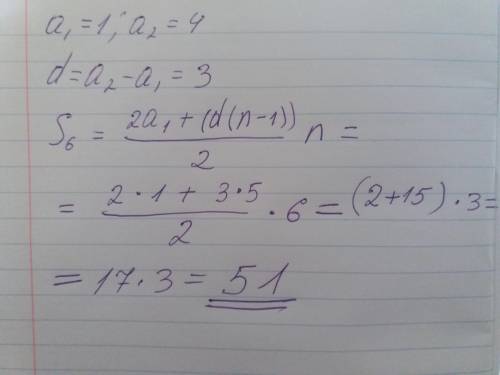 a₁ = 1; a₂ = 4
d = a₂ - a₁ = 3
S₆ = (2a₁ + (d(n-1)))/2 n =
= (2 · 1 + 3 · 5)/2 · 6 = (2+15) · 3 =
= 17 · 3 = 51